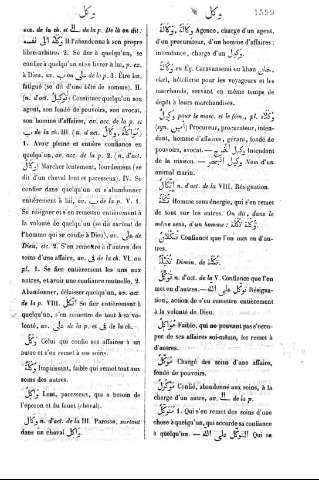 وكل
وكل
1599
acc. de la ch. et الى de la p. De là on dit :
Il l'abandonna à son propre
libre-arbitre. 2. Se fier à quelqu'un, se
confier à quelqu'un et se livrer à lui, p. ex.
à Dieu, av. على de la p. 3. Être las,
fatigué (se dit d'une bête de somme). II.
(n. d'act. توكيل) Constituer quelqu'un son
agent, son fondé de pouvoirs, son avocat,
son homme d'affaires, av. acc. de la p. et
ب de la ch. III. (n. d'act.
1. Avoir pleine et entière confiance en
quelqu'un, av. acc. de la p. 2. (n. d'act.
Marcher lourdement, lourdement (se
dit d'un cheval lent et paresseux). IV. Se
confier dans quelqu'un et s'abandonner
entièrement à lui, av. ب de la p. V. 1.
Se résigner et s'en remettre entièrement à
la volonté de quelqu'un (se dit surtout de
l'homme qui se confie à Dieu), av. على de
Dieu, etc. 2. S'en remettre à d'autres des
soins d'une affaire, av. في de la ch. VI. au
pl. 1. Se fier entièrement les uns aux
autres, et avoir une confiance mutuelle. 2.
Abandonner, délaisser quelqu'un, av. acc.
de la p. VIII. اتكل Se fier entièrement à
quelqu'un, s'en remettre de tout à sa vo-
lonté, av. على de la p. et في de la ch.
وكل Celui qui confie ses affaires à un
autre et s'en remet à ses soins.
وكلة Impuissant, faible qui remet tout aux
soins des autres.
واكل Lent, paresseux, qui a besoin de
l'éperon et du fouet (cheval).
وكال n. d'act. de la III. Paresse, surtout
dans un cheval واكل
وكالة Agence, charge d'un agent,
d'un procureur, d'un homme d'affaires ;
intendance, charge d'un وكيل.
وكالة en Eg. Caravansérai ou khan خان,
okel, hôtellerie pour les voyageurs et les
marchands, servant en même temps de
dépôt à leurs marchandises.
وكيل pour le masc. et le fém., pl. وكلاء
(syn. امين) Procureur, procurateur, inten-
dant, homme d'affaires, gérant, fondé de
pouvoirs, avocat. — وكيل الخرج Intendant
de la maison. — Nom d'un
animal marin.
اتكال n. d'act. de la VIII. Résignation.
تكلة Homme sans énergie, qui s'en remet
de tout sur les autres. On dit, dans le
même sens, d'un homme : وكلة تكلة.
تكلان Confiance que l'on met en d'au-
tres.
Dimin. de تكلة.
توكل n. d'act. de la V. Confiance que l'on
met en d'autres. — توكل على الله Résigna-
tion, action de s'en remettre entièrement
à la volonté de Dieu.
مواكل Faible, qui ne pouvant pas s'occu-
per de ses affaires soi-même, les remet à
d'autres.
موكل Chargé des soins d'une affaire,
fondé de pouvoirs.
موكول Confié, abandonné aux soins, à la
charge d'un autre, av. الى de la p.
متوكل 1. Qui s'en remet des soins d'une
chose à quelqu'un, qui accorde sa confiance
à quelqu'un. — المتوكل على الله Qui se